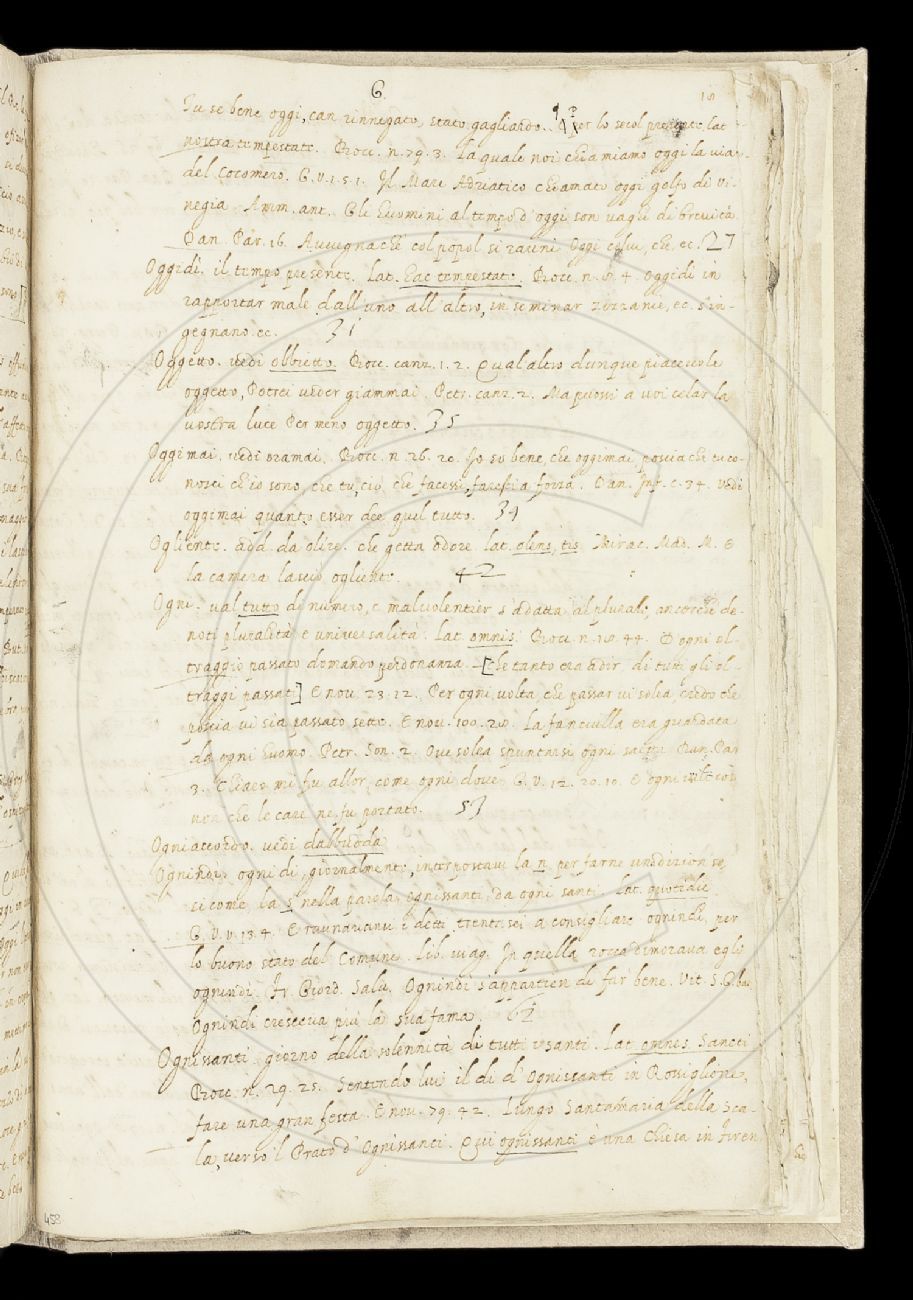 G 18
Tu se bene oggi, can rinnegato, stato gagliardo. ¶ per lo secol presente, lat
nostra tempestate. Bocc. n. 79. 3. La quale noi chiamiamo oggi la via
del Cocomero. G. V. 1. 5. 1. Il Mare Adriatico chiamato oggi golfo di Vi-
negia. Amm. ant. Gli huomini al tempo d'oggi son vaghi di brevità.
Dan. Par. 16. Avvegnachè col popol si raüni Oggi colui, che, ec. 27
Oggidì. il tempo presente. Lat. hac tempestate. Bocc. n. 8. 4. Oggidì in
rapportar male dall'uno all'altro, in seminar zizzanie, ec. s'in-
gegnano. ec. 31
Oggetto. vedi obbietto. Bocc. canz. 1. 2. Qual altro dunque piacevole
oggetto, Potrei veder giammai. Petr. canz. 2. Ma puossi a voi celar la
vostra luce Per meno oggetto. 35
Oggimai. vedi oramai. Bocc. n. 26. 20. Io so bene, che oggimai, poscia che tu co-
nosci ch'io sono, che tu, ciò, che facessi, faresti a forza. Dan. Inf. c. 34. Vedi
oggimai quanto esser dee quel tutto. 39
Ogliente. add. da olire. che getta odore. lat. olens, tis. Mirac. Mad. M. E
la camera lasciò ogliente. 42
Ogni. val tutto di numero, e malvolentier s'adatta al plurale, ancorchè de-
noti pluralità e universalità. Lat. omnis. Bocc. n. 18. 44. D'ogni ol-
traggio passato domandò perdonanza. [che tanto era a dir, di tutti gli ol-
traggi passati] E nov. 23. 12. Per ogni volta, che passar vi solea, credo che
poscia vi sia passato sette. E nov. 100. 28. La fanciulla era guardata
da ogni huomo. Petr. Son. 2. Ove solea spuntarsi ogni saetta. Dan. Par
3. Chiaro mi fu allor, come ogni dove. G. V. 12. 20. 10. E ogni vil cosa
non che le care ne fu portato. 53
Ogni accordo. vedi dabbudda
Ognindì. ogni dì, giornalmente, interpostavi la n per farne una dizion so,
sì come la s nella parola ognissanti, da ogni santi. Lat. quotidie
G. V. v. 13. 4. E raunavansi i detti trentasei a consigliare ognindì, per
lo buono stato del Comune. Lib. viag. In quella rocca dimorava egli
ognindì. Fr. Giord. Salv. Ognindì s'appartien di far bene. Vit. S. G. ba.
Ognindì cresceva più la sua fama. 62
Ognissanti. giorno della solennità di tutti i santi. Lat. omnes Sancti
Bocc. n. 29. 25. Sentendo lui il dì d'Ognissanti in Rossiglione,
fare una gran festa. E nov. 79. 42. Lungo Santamaria della Sca-
la, verso 'l Prato d'Ognissanti. Qui ognissanti è una Chiesa in Firen
458